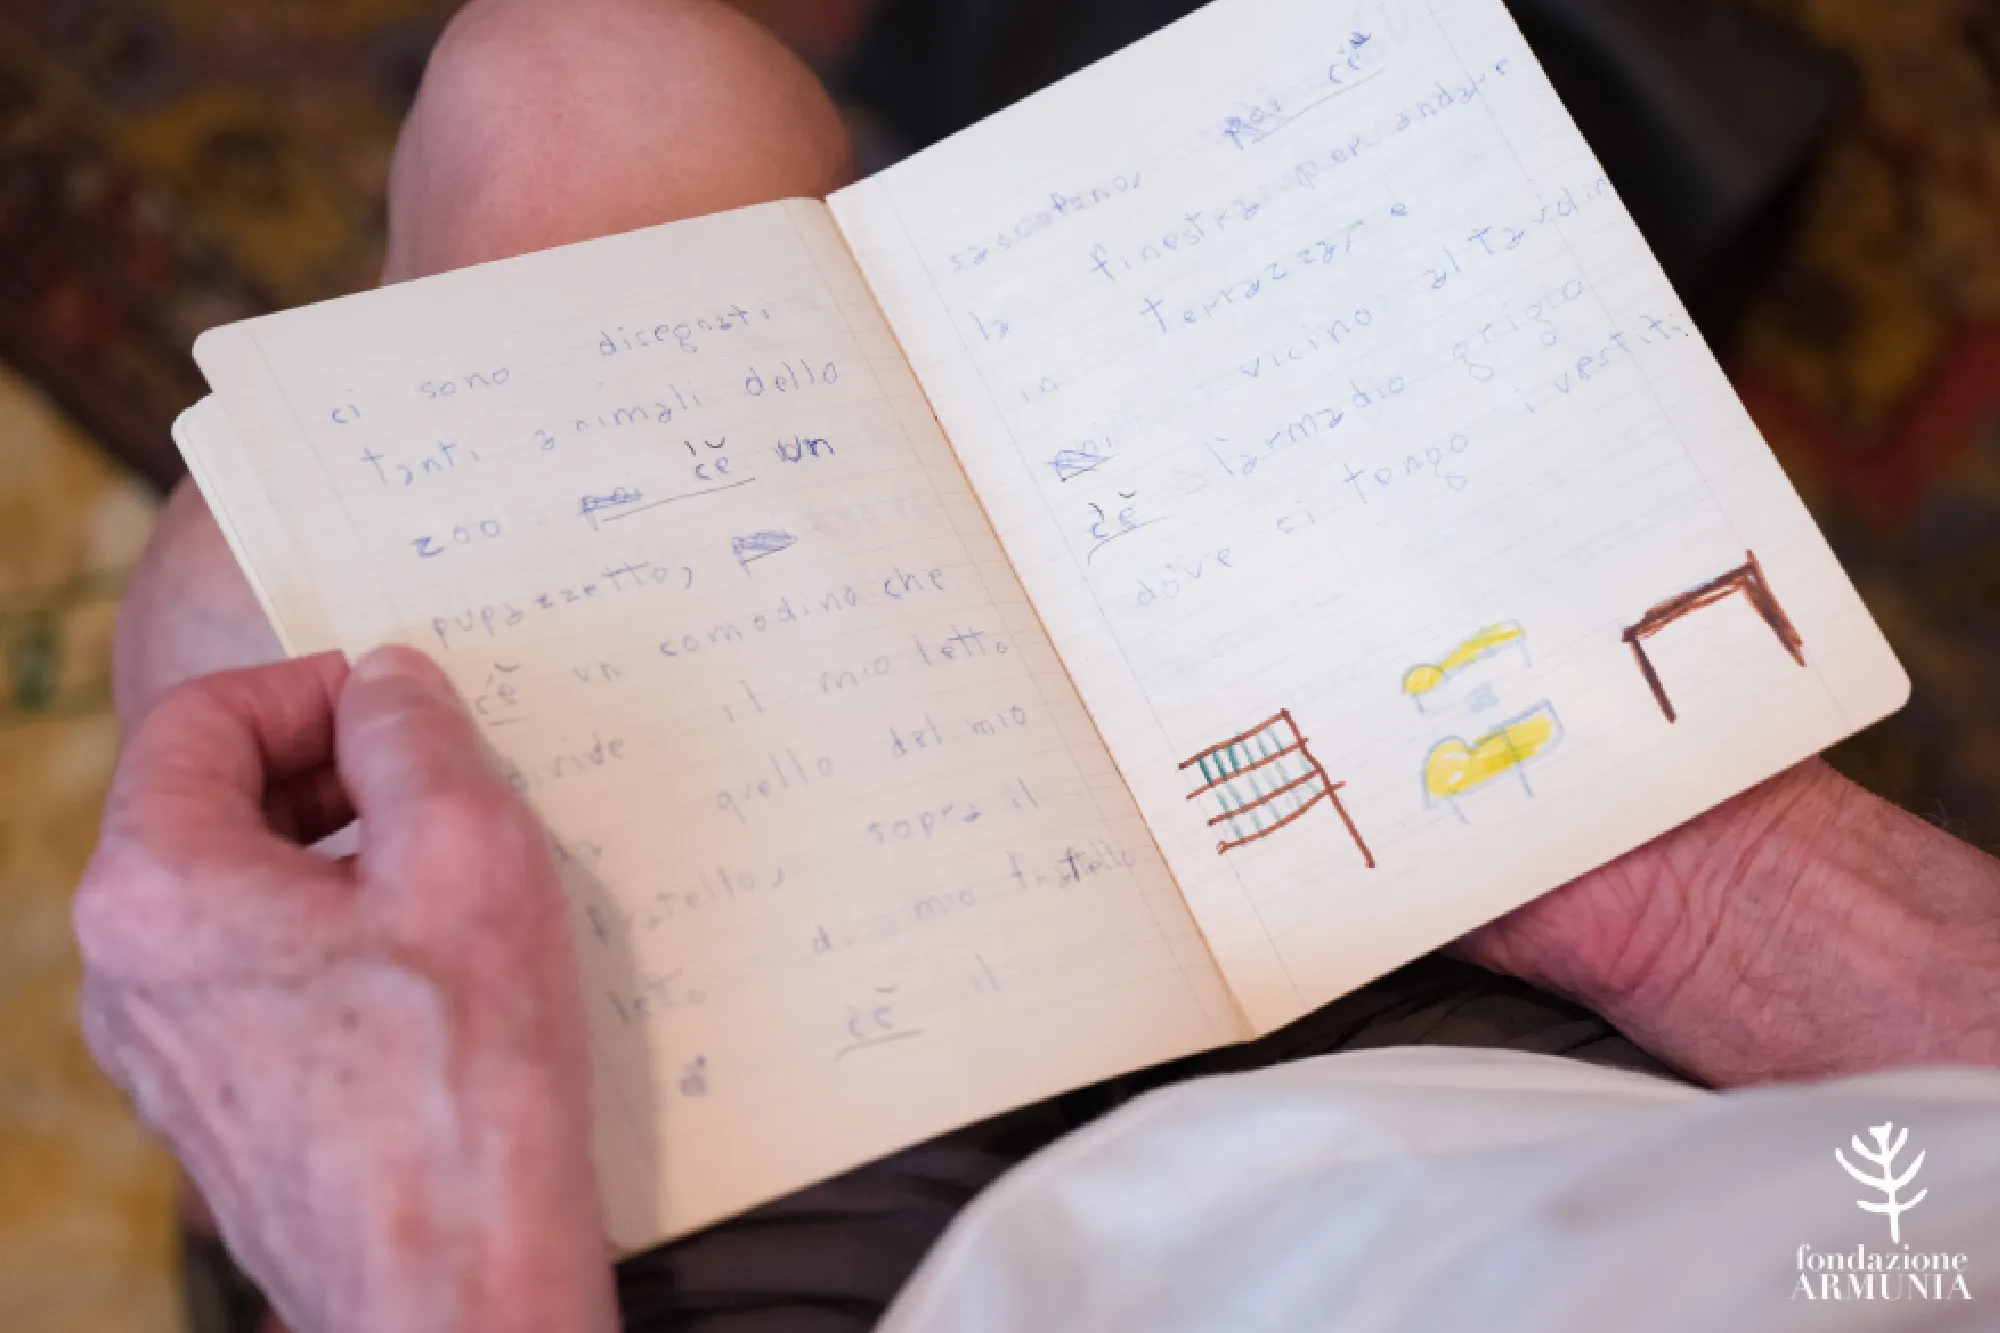 ci sono disegnati
tanti animali dello
zoo. c'è un
pupazzetto,
c'è un comodino che
divide il mio letto
da quello del mio
fratello, sopra il
leto di mio fratello
c'è il
sascopano, c'è
la finestra per andare
in terrazza, e
vicino alta
c'è l'armadio grigio
dove ci tengo i vestiti
fondazione
ARMUNIA